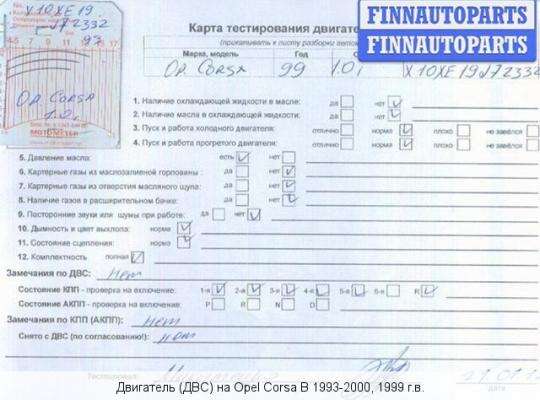 X10XE19
J72332
97
4 5 7 9 11 13 15 17
Op. Corsa
1.0i
MOTOMETER
FINNAUTOPARTS
FINNAUTOPARTS
Карта тестирования двигат
(прикатывать к листу разборки
Марка, модель Год
Op. Corsa 99 1.0i X10XE19 J72332
1. Наличие охлаждающей жидкости в масле: да нет
2. Наличие масла в охлаждающей жидкости: да нет
3. Пуск и работа холодного двигателя: отлично норма плохо не завёлся
4. Пуск и работа прогретого двигателя: отлично норма плохо не завёлся
5. Давление масла: есть нет
6. Картерные газы из маслозаливной горловины: да нет
7. Картерные газы из отверстия масляного щупа: да нет
8. Наличие газов в расширительном бачке: да нет
9. Посторонние звуки или шумы при работе: да нет
10. Дымность и цвет выхлопа: норма
11. Состояние сцепления: норма
12. Комплектность полная
Замечания по ДВС: нет
Состояние КПП - проверка на включение: 1-я 2-я 3-я 4-я 5-я 6-я R
Состояние АКПП - проверка на включение: P R N D
Замечания по КПП (АКПП): нет
Снято с ДВС (по согласованию!): нет
Тестировал:
дата
Двигатель (ДВС) на Opel Corsa B 1993-2000, 1999 г.в.